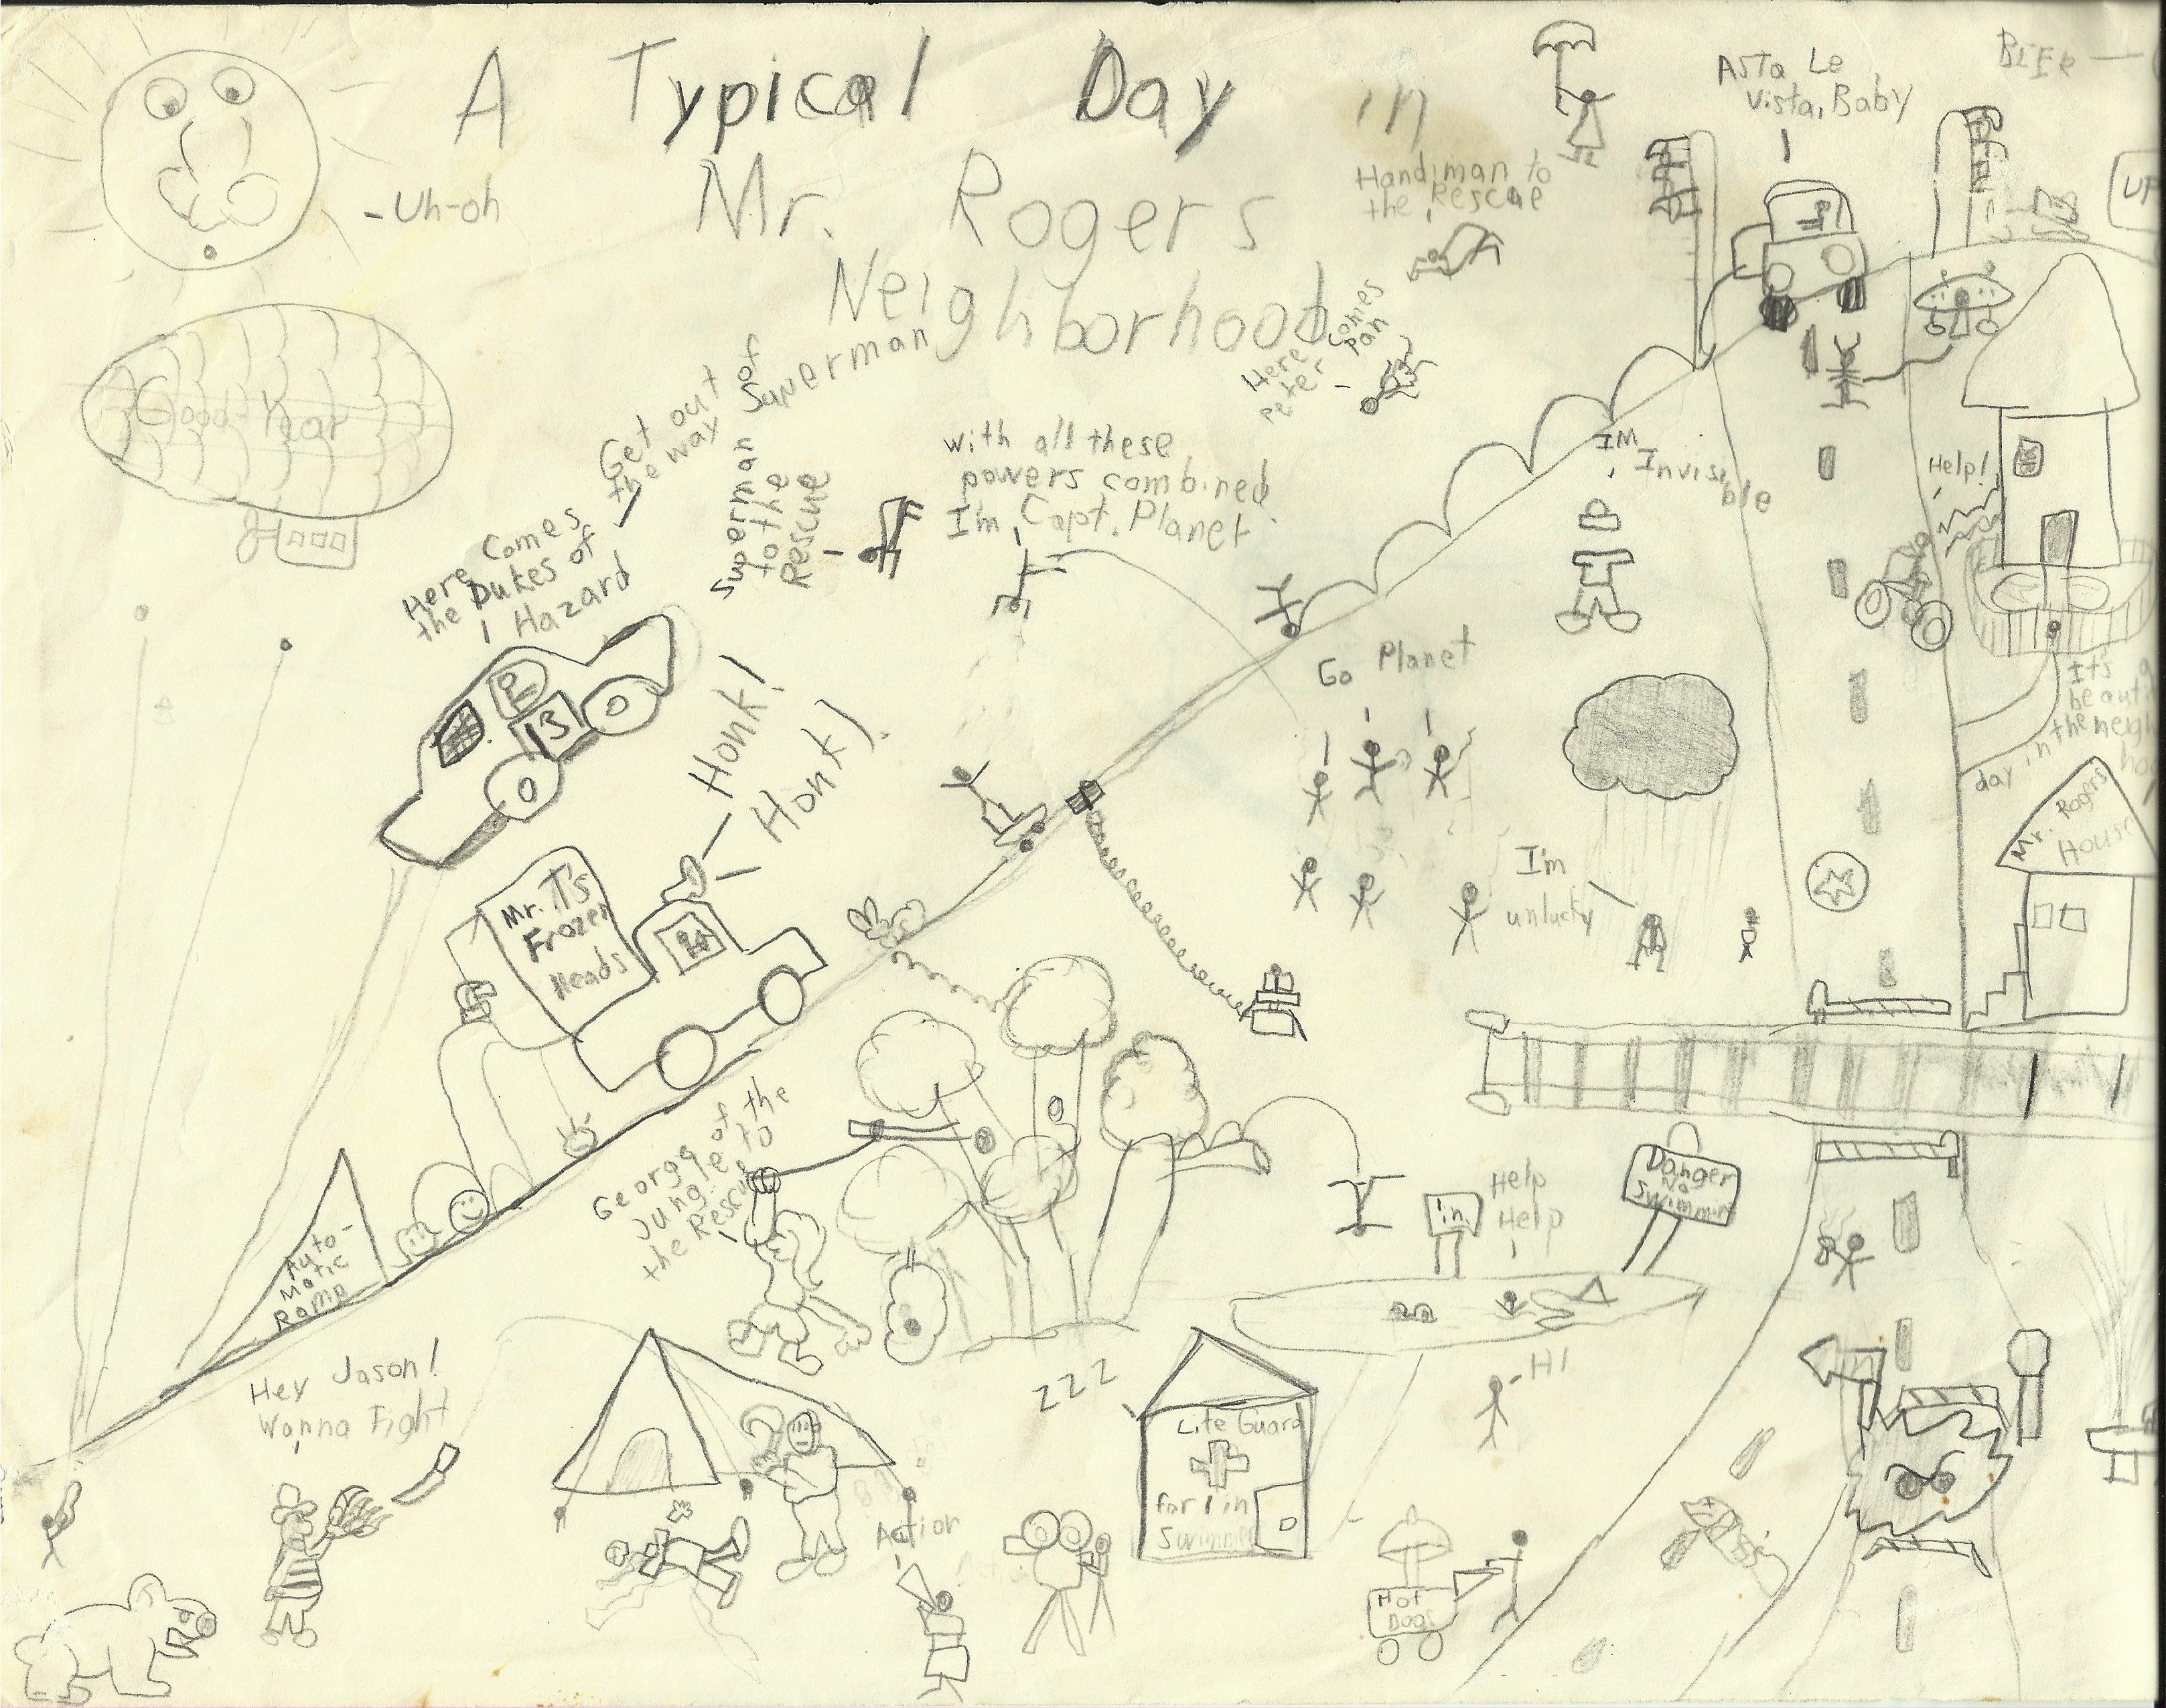 A Typical Day in
Mr. Rogers
Neighborhood
-Uh-oh
Good Year
Here Comes
the Dukes of
Hazard
Get out of
the way Superman
Superman
to the
Rescue
with all these
powers combined
I'm Capt. Planet
Here comes
peter pan
Handiman to
the Rescue
Asta Le
Vista, Baby
BEER
UP
IM
Invisible
Help!
Go Planet
It's a
beauti
day in the neigh
Mr. Rogers
House
I'm
unlucky
13
Honk!
Honk!
Mr. T's
Frozen
Heads
Auto-
Matic
Ramp
George of the
Jungle to
the Rescue
Hey Jason!
Wanna Fight
Action
ZZZ
Life Guard
for 1 in
Swimmin
1 in.
Help
Help
Danger
No
Swimmin
-HI
Hot
Dogs